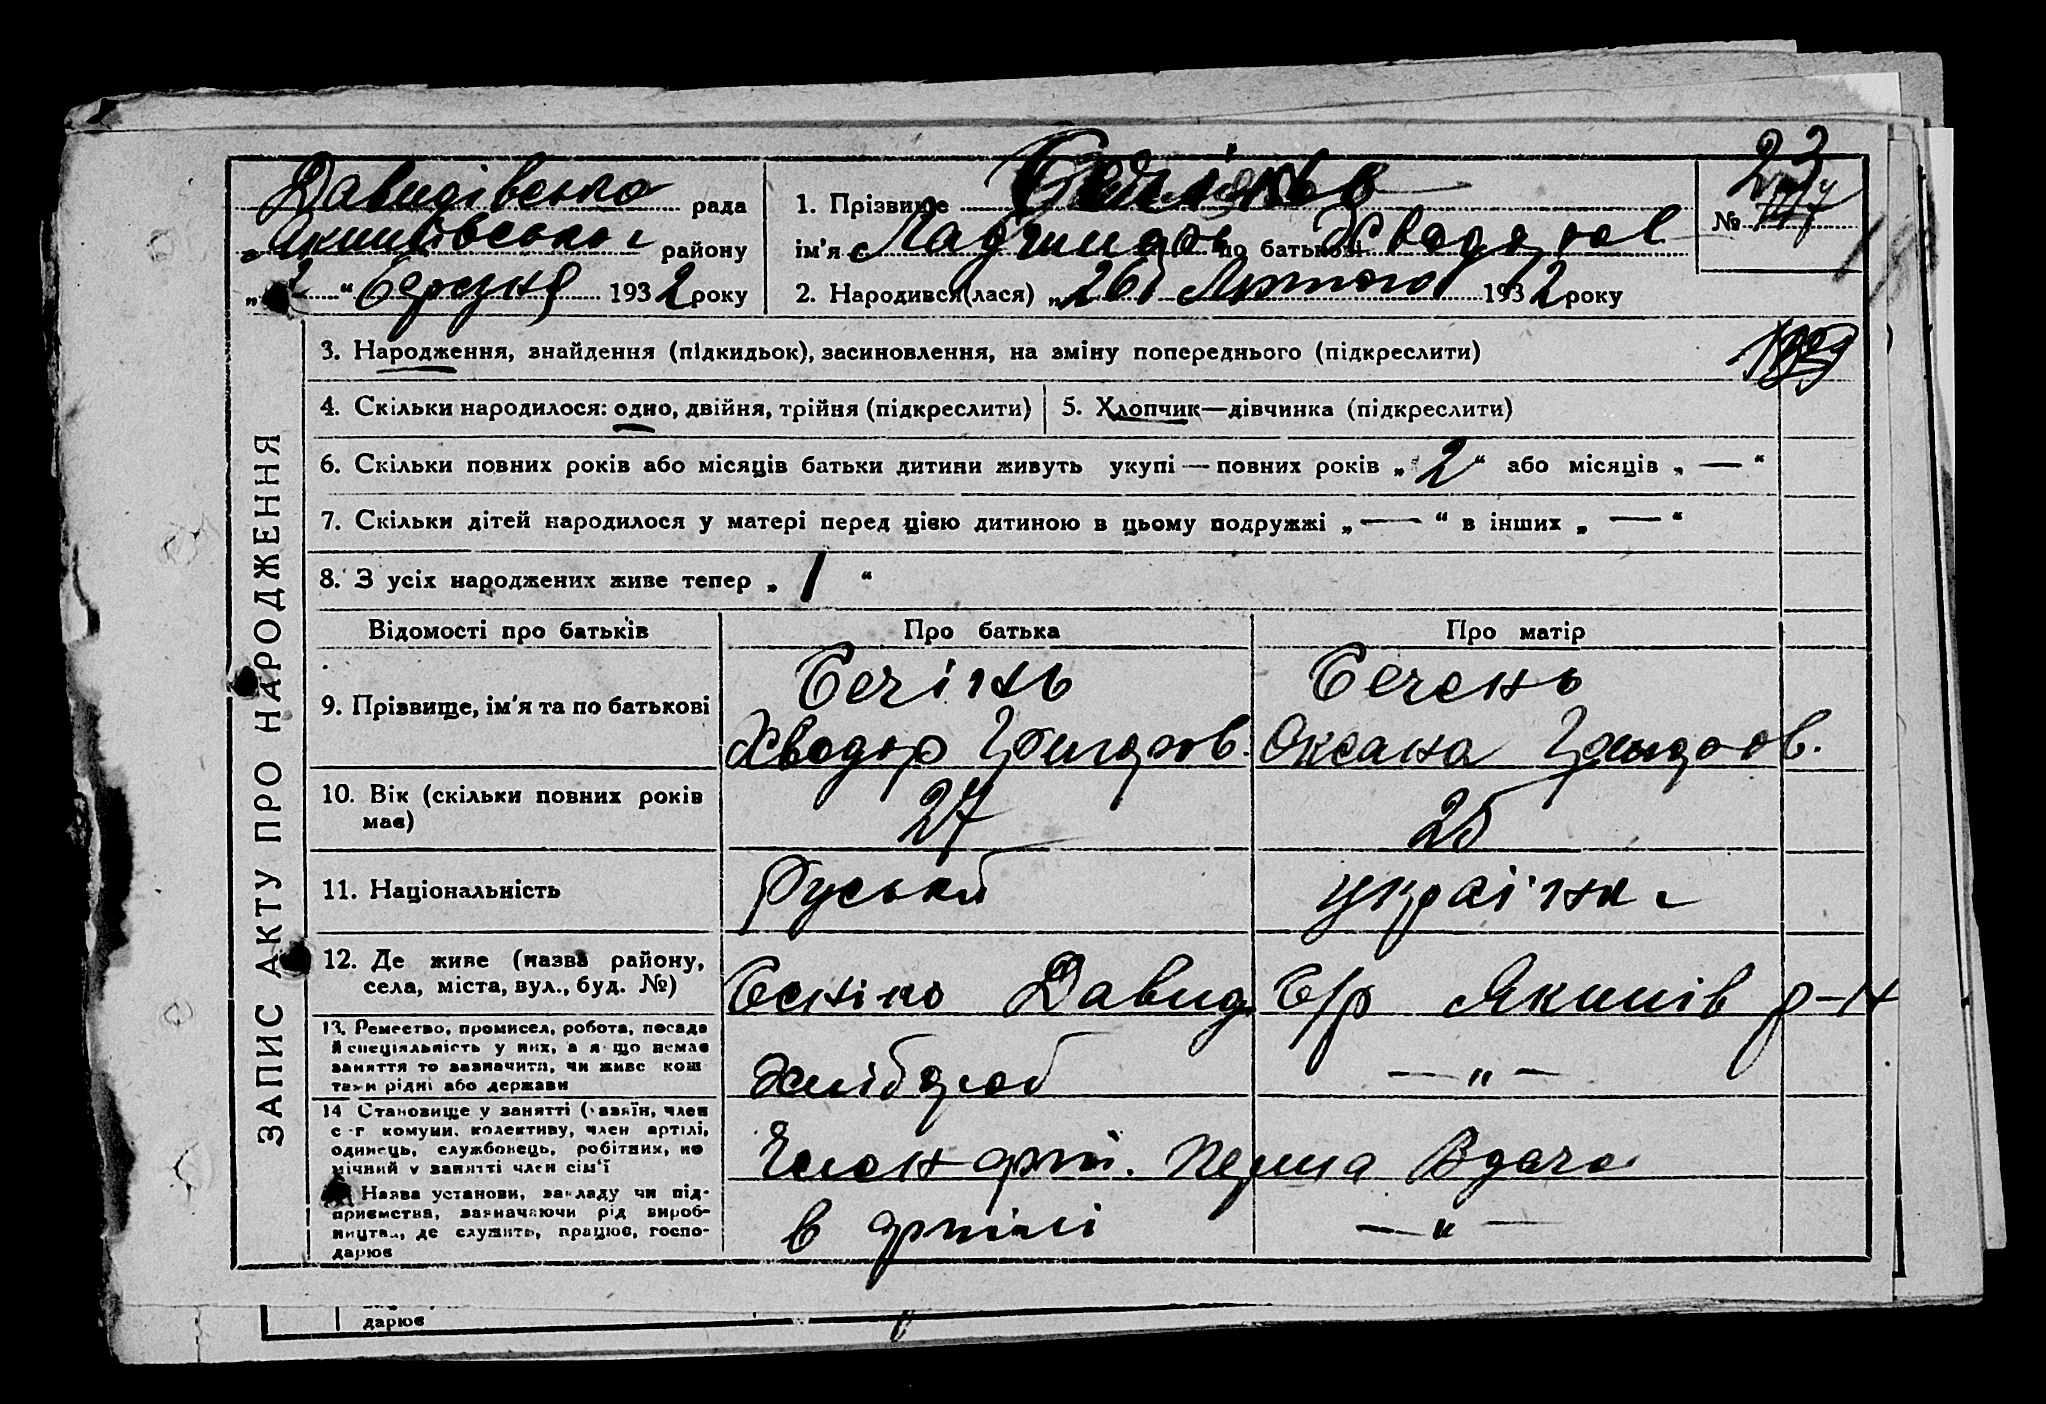 23
Давидівська рада
Якимівського району
„2“ березня 1932 року
1. Прізвище Бечінь
ім'я по батькові Хводоров
2. Народився(лася) „26“ Лютого 1932 року
№
3. Народження, знайдення (підкидьок), засиновлення, на зміну попереднього (підкреслити)
4. Скільки народилося: одно, двійня, трійня (підкреслити)
5. Хлопчик—дівчинка (підкреслити)
6. Скільки повних років або місяців батьки дитини живуть укупі — повних років „2“ або місяців „—“
7. Скільки дітей народилося у матері перед цією дитиною в цьому подружжі „—“ в інших „—“
8. З усіх народжених живе тепер „1“
ЗАПИС АКТУ ПРО НАРОДЖЕННЯ
Відомості про батьків
Про батька
Про матір
9. Прізвище, ім'я та по батькові
Бечінь
Хводор Григоров.
Бечень
Оксана Григоров.
10. Вік (скільки повних років має)
27
25
11. Національність
Руський
українка
12. Де живе (назва району,
села, міста, вул., буд. №)
Давид. С/р Якимів р-н
13. Ремество, промисел, робота, посада
й спеціяльність у них, а якщо немає
заняття то зазначити, чи живе кош
тами рідні або держави
хлібороб
— „ —
14 Становище у занятті (хазяїн, член
с-г комуни, колективу, член артілі,
одинець, службовець, робітник, по
мічний у занятті член сім'ї
Член арт.
Назва установи, закладу чи під-
приємства, зазначаючи рід вироб-
ництва, де служить, працює, госпо-
дарює
в артілі
— „ —
дарює